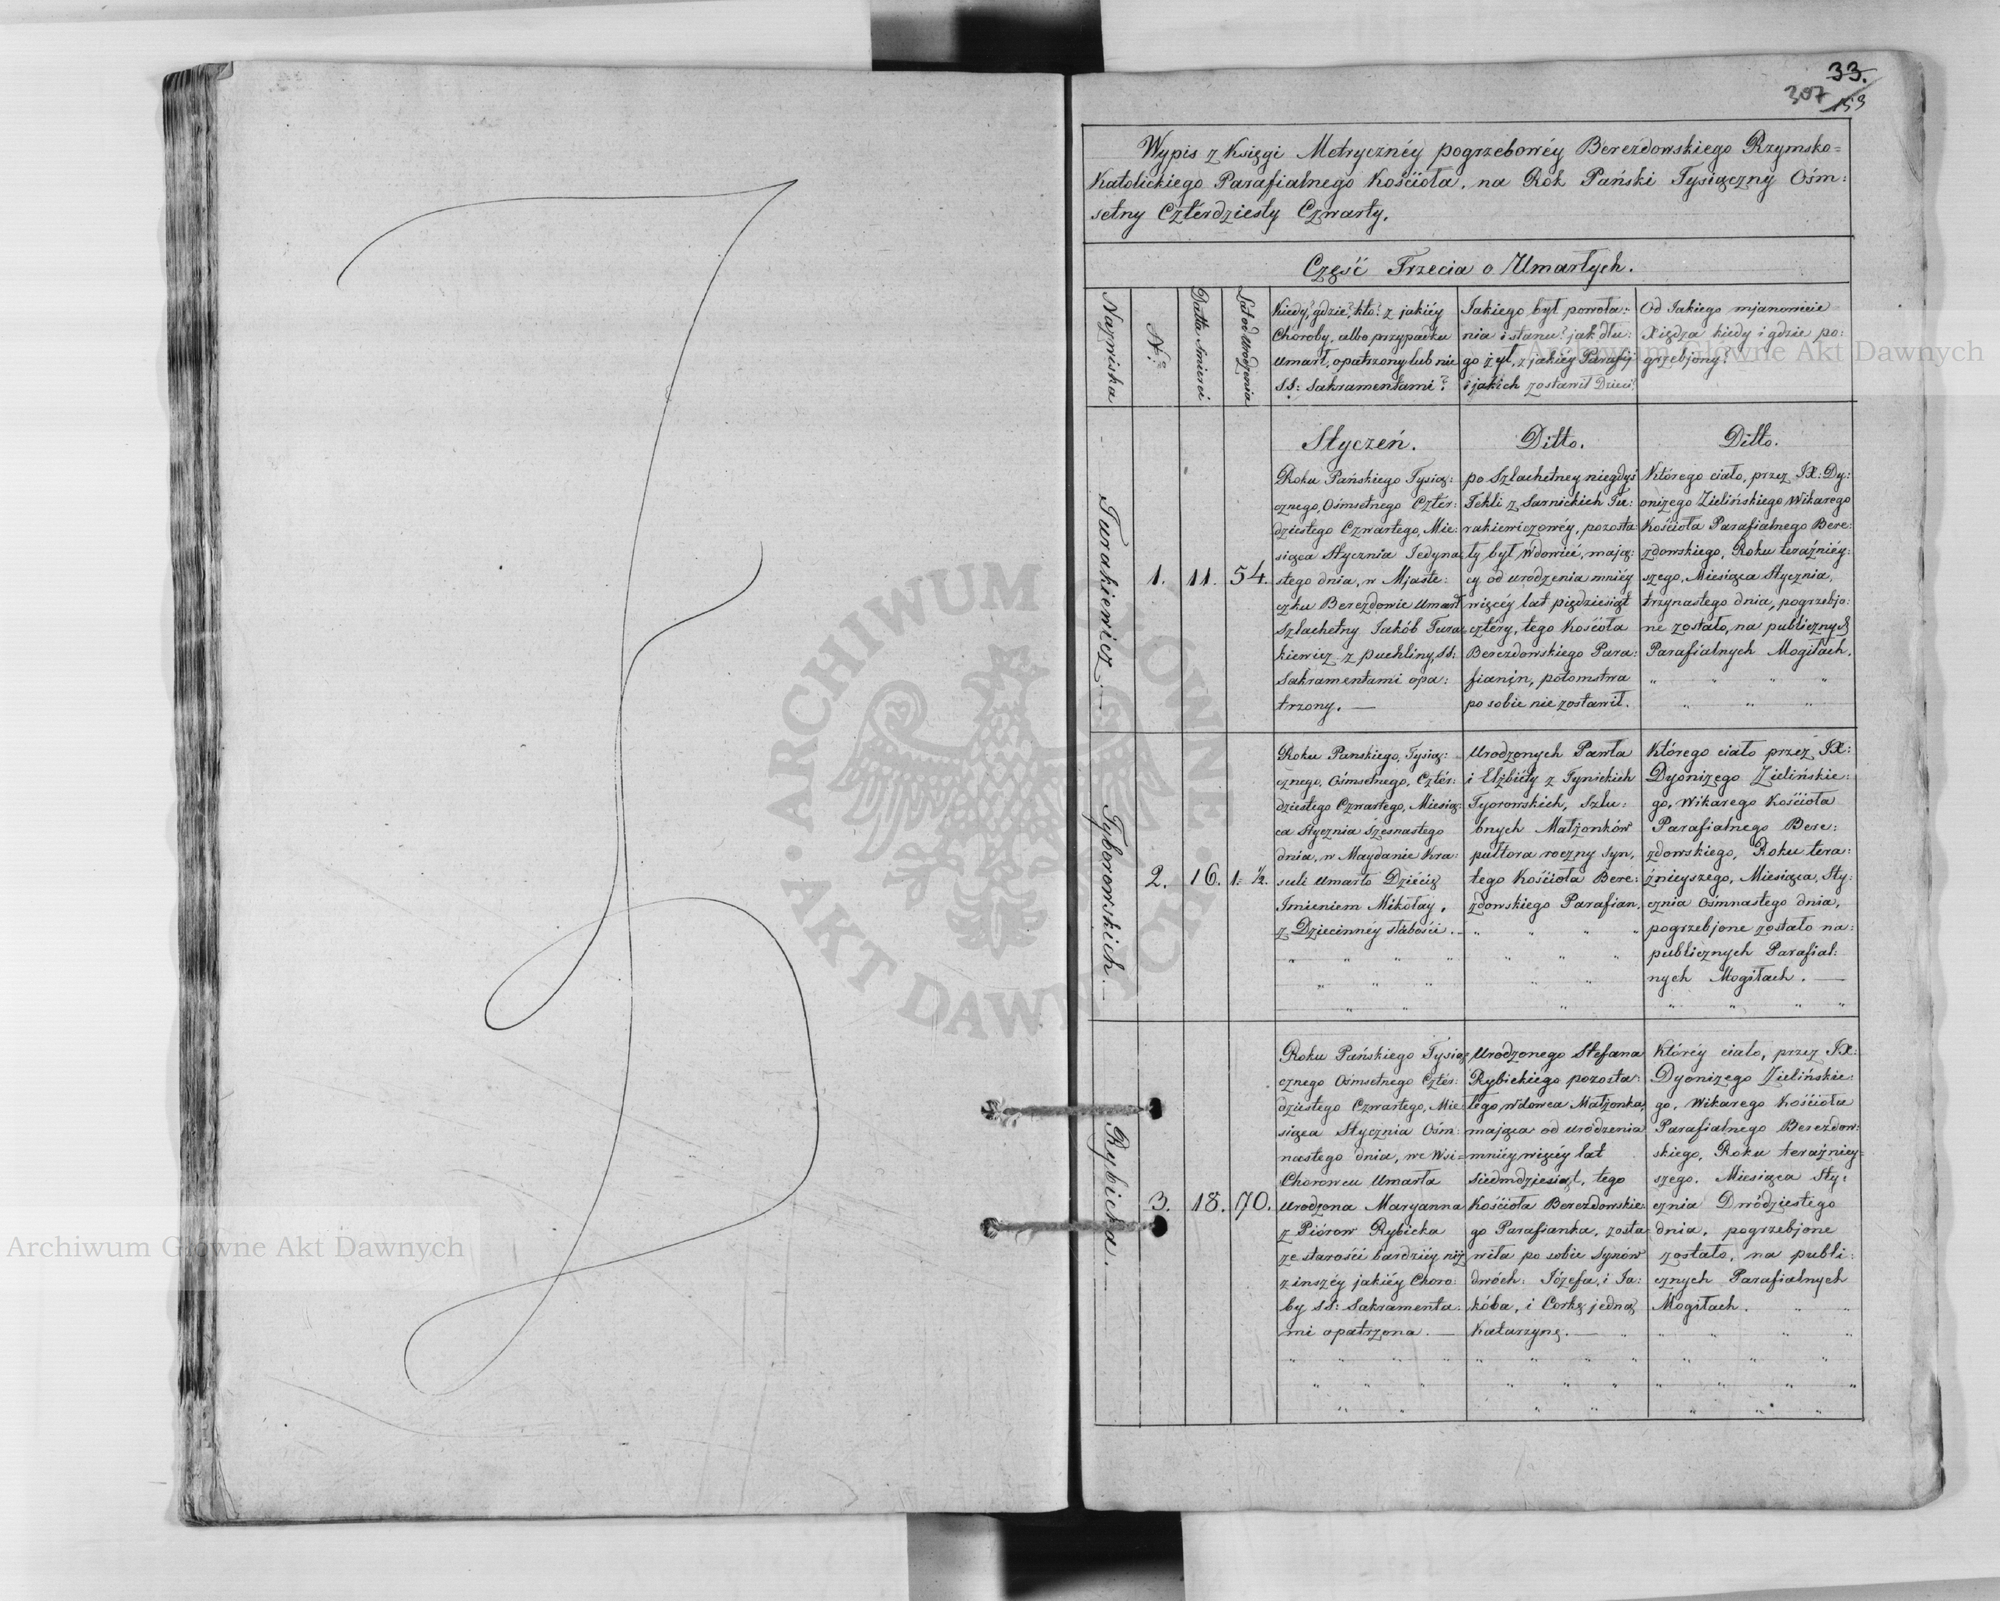 33.
307
153
Wypis z Księgi Metrycznéy pogrzebowéy Berezdowskiego Rzymsko=
Katolickiego Parafialnego Kościoła, na Rok Pański Tysiączny Ośm:
setny Cztérdziesty Czwarty.
Część Trzecia o Umarłych.
Nazwiska
N°
Datta Smierci
Lat od Urodzenia
Kiedy, gdzie, kto? z jakiéy
Choroby, albo przypadku
Umarł, opatrzony lub nie
SS: Sakramentami?
Jakiego był powoła:
nia i stanu? jak dłu:
go żył, z jakiéy Parafij
i jakich zostawił Dzieci?
Od Jakiego mjanowicie
Xiędza kiedy i gdzie po:
grzebjony?
Styczeń.
Ditto.
Ditto.
Turakiewicz.
1.
11.
54.
Roku Pańskiego Tysią:
cznego, Ośmsetnego Czter:
dziestego Czwartego, Mie:
siąca Stycznia Jedyna:
stego dnia, w Mjaste:
czku Berezdowie Umarł
Szlachetny Jakób Tura:
kiewicz z puchliny, SS:
Sakramentami opa:
trzony.
po Szlachetney niegdyś
Tekli z Sarnickich Tu:
rakiewiczowéy, pozosta:
ły był Wdowiec, mają:
cy od urodzenia mniéy
więcéy lat pięćdziesiąt
cztéry, tego Kościoła
Berezdowskiego Para:
fianin, potomstwa
po sobie nie zostawił.
Którego ciało, przez JX: Dy:
onizego Zielińskiego Wikarego
Kościoła Parafialnego Bere:
zdowskiego, Roku teraźniéy:
szego, Miesiąca Stycznia,
trzynastego dnia, pogrzebjo:
ne zostało, na publicznych
Parafialnych Mogiłach.
Tyborowskich.
2.
16.
1. ½.
Roku Panskiego, Tysią:
cznego, Ośmsetnego, Cztér:
dziestego Czwartego, Miesią:
ca Stycznia Szesnastego
dnia, w Maydanie Kra:
suli Umarło Dziécię
Imieniem Mikołay,
z Dziecinnéy słabości.
Urodzonych Pawła
i Elżbiéty z Tynickich
Tyorowskich, Szlu:
bnych Małżonków
pułtora roczny Syn,
tego Kościoła Bere:
zdowskiego Parafian,
Którego ciało przez JX:
Dyonizego Zielińskie:
go, Wikarego Kościoła
Parafialnego Bere:
zdowskiego, Roku tera:
źnieyszego, Miesiąca, Sty:
cznia Ośmnastego dnia,
pogrzebjone zostało na:
publicznych Parafial:
nych Mogiłach.
Rybicka.
3.
18.
70.
Roku Pańskiego Tysią:
cznego Ośmsetnego Cztér:
dziestego Czwartego, Mie:
siąca Stycznia Ośm:
nastego dnia, we Wsi
Chorowcu Umarła
Urodzona Maryanna
z Piórow Rybicka
ze starości bardziéy niż
z inszéy jakiéy Choro:
by SS: Sakramenta:
mi opatrzona.
Urodzonego Stefana
Rybickiego pozosta:
łego wdowca Małżonka,
mająca od urodzenia
mniéy więcéy lat
siedmdziesiąt, tego
Kościoła Berezdowskie:
go Parafianka, zosta:
wiła po sobie Synów
dwóch: Józefa, i Ja:
kóba, i Corkę jedną
Katarzynę.
Któréy ciało, przez JX:
Dyonizego Zielińskie:
go, Wikarego Kościoła
Parafialnego Berezdow:
skiego, Roku teraźniey:
szego, Miesiąca Sty:
cznia Dwódziestego
dnia, pogrzebjone
zostało, na publi:
cznych Parafialnych
Mogiłach.
Archiwum Główne Akt Dawnych
Archiwum Główne Akt Dawnych
ARCHIWUM GŁÓWNE · AKT DAWNYCH ·